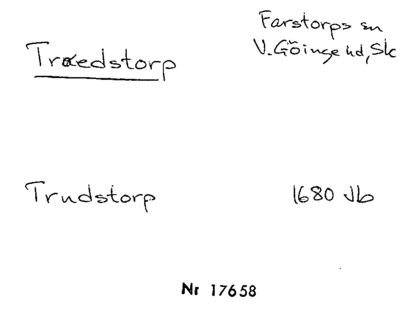 Farstorps sn
Traedstorp
V.Göinge hd, Sk
Trudstorp
1680 Jb
Nr 17658